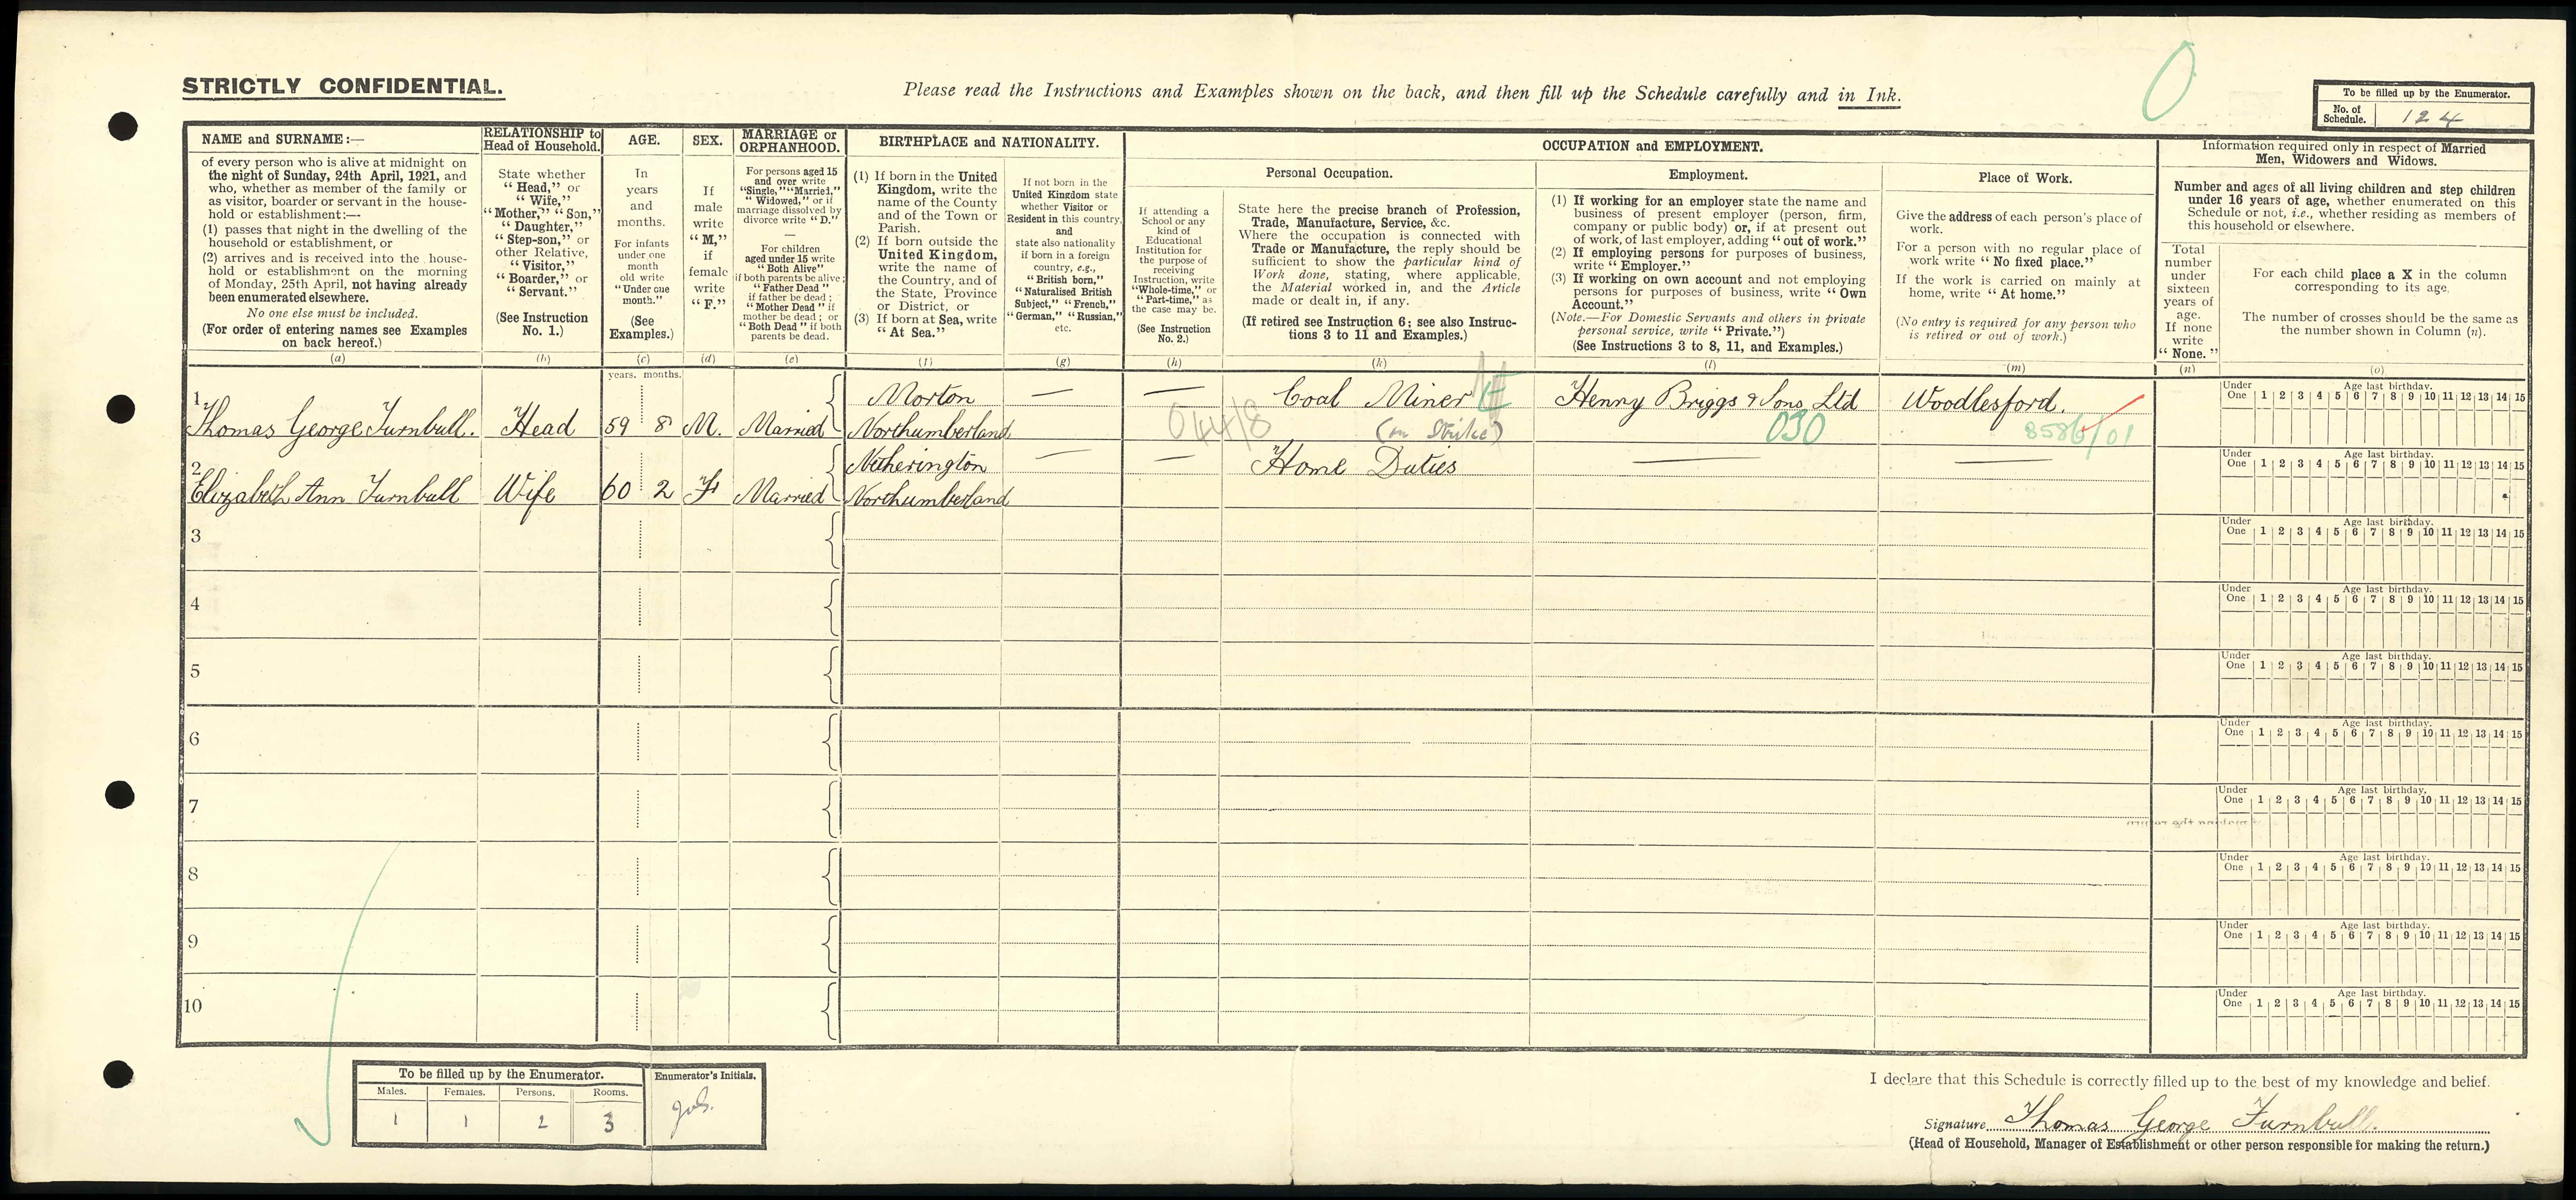 STRICTLY CONFIDENTIAL.
Please read the Instructions and Examples shown on the back, and then fill up the Schedule carefully and in Ink.
To be filled up by the Enumerator.
No. of Schedule. 124
NAME and SURNAME:—
of every person who is alive at midnight on
the night of Sunday, 24th April, 1921, and
who, whether as member of the family or
as visitor, boarder or servant in the house-
hold or establishment:—
(1) passes that night in the dwelling of the
household or establishment, or
(2) arrives and is received into the house-
hold or establishment on the morning
of Monday, 25th April, not having already
been enumerated elsewhere.
No one else must be included.
(For order of entering names see Examples
on back hereof.)
(a)
RELATIONSHIP to
Head of Household.
State whether
"Head," or
"Wife,"
"Mother," "Son,"
"Daughter,"
"Step-son," or
other Relative,
"Visitor,"
"Boarder," or
"Servant."
(See Instruction
No. 1.)
(b)
AGE.
In
years
and
months.
For infants
under one
month
old write
"Under one
month."
(See
Examples.)
(c)
SEX.
If
male
write
"M,"
if
female
write
"F."
(d)
MARRIAGE or
ORPHANHOOD.
For persons aged 15
and over write
"Single," "Married,"
"Widowed," or if
marriage dissolved by
divorce write "D."
—
For children
aged under 15 write
"Both Alive"
if both parents be alive;
"Father Dead"
if father be dead;
"Mother Dead" if
mother be dead; or
"Both Dead" if both
parents be dead.
(e)
BIRTHPLACE and NATIONALITY.
(1) If born in the United
Kingdom, write the
name of the County
and of the Town or
Parish.
(2) If born outside the
United Kingdom,
write the name of
the Country, and of
the State, Province
or District, or
(3) If born at Sea, write
"At Sea."
(f)
If not born in the
United Kingdom state
whether Visitor or
Resident in this country,
and
state also nationality
if born in a foreign
country, e.g.,
"British born,"
"Naturalised British
Subject," "French,"
"German," "Russian,"
etc.
(g)
OCCUPATION and EMPLOYMENT.
If attending a
School or any
kind of
Educational
Institution for
the purpose of
receiving
Instruction, write
"Whole-time," or
"Part-time," as
the case may be.
(See Instruction
No. 2.)
(h)
Personal Occupation.
State here the precise branch of Profession,
Trade, Manufacture, Service, &c.
Where the occupation is connected with
Trade or Manufacture, the reply should be
sufficient to show the particular kind of
Work done, stating, where applicable,
the Material worked in, and the Article
made or dealt in, if any.
(If retired see Instruction 6; see also Instruc-
tions 3 to 11 and Examples.)
(k)
Employment.
(1) If working for an employer state the name and
business of present employer (person, firm,
company or public body) or, if at present out
of work, of last employer, adding "out of work."
(2) If employing persons for purposes of business,
write "Employer."
(3) If working on own account and not employing
persons for purposes of business, write "Own
Account."
(Note.—For Domestic Servants and others in private
personal service, write "Private.")
(See Instructions 3 to 8, 11, and Examples.)
(l)
Place of Work.
Give the address of each person's place of
work.
For a person with no regular place of
work write "No fixed place."
If the work is carried on mainly at
home, write "At home."
(No entry is required for any person who
is retired or out of work.)
(m)
Information required only in respect of Married
Men, Widowers and Widows.
Number and ages of all living children and step children
under 16 years of age, whether enumerated on this
Schedule or not, i.e., whether residing as members of
this household or elsewhere.
Total
number
under
sixteen
years of
age.
If none
write
"None."
(n)
For each child place a X in the column
corresponding to its age.
The number of crosses should be the same as
the number shown in Column (n).
(o)
years. months.
1
Thomas George Turnbull. Head 59 8 M. Married
Morton
Northumberland
— —
Coal Miner
(on Strike)
044/8
Henry Briggs & Sons Ltd
030
Woodlesford.
8586/01
Under One Age last birthday. 1 2 3 4 5 6 7 8 9 10 11 12 13 14 15
2
Elizabeth Ann Turnbull Wife 60 2 F Married
Netherington
Northumberland
— —
Home Duties
— —
Under One Age last birthday. 1 2 3 4 5 6 7 8 9 10 11 12 13 14 15
3
Under One Age last birthday. 1 2 3 4 5 6 7 8 9 10 11 12 13 14 15
4
Under One Age last birthday. 1 2 3 4 5 6 7 8 9 10 11 12 13 14 15
5
Under One Age last birthday. 1 2 3 4 5 6 7 8 9 10 11 12 13 14 15
6
Under One Age last birthday. 1 2 3 4 5 6 7 8 9 10 11 12 13 14 15
7
Under One Age last birthday. 1 2 3 4 5 6 7 8 9 10 11 12 13 14 15
8
Under One Age last birthday. 1 2 3 4 5 6 7 8 9 10 11 12 13 14 15
9
Under One Age last birthday. 1 2 3 4 5 6 7 8 9 10 11 12 13 14 15
10
Under One Age last birthday. 1 2 3 4 5 6 7 8 9 10 11 12 13 14 15
To be filled up by the Enumerator.
Males. Females. Persons. Rooms.
1 1 2 3
Enumerator's Initials.
I declare that this Schedule is correctly filled up to the best of my knowledge and belief.
Signature Thomas George Turnbull.
(Head of Household, Manager of Establishment or other person responsible for making the return.)